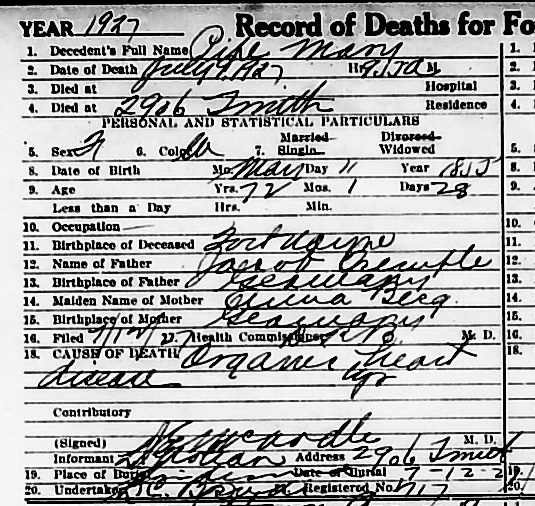 YEAR 1927 Record of Deaths for Fo
1. Decedent's Full Name Pipe Mary
2. Date of Death July 9, 1927 Hr. M.
3. Died at Hospital
4. Died at 2906 Smith Residence
PERSONAL AND STATISTICAL PARTICULARS
Married Divorced
5. Sex F 6. Color W 7. Single Widowed
8. Date of Birth Mo. May Day 11 Year 1855
9. Age Yrs. 72 Mos. 1 Days 28
Less than a Day Hrs. Min.
10. Occupation
11. Birthplace of Deceased Fort Wayne
12. Name of Father Jacob
13. Birthplace of Father Germany
14. Maiden Name of Mother
15. Birthplace of Mother Germany
16. Filed 7/12/27 17. Health Commissioner M. D.
18. CAUSE OF DEATH Organic heart
disease
Contributory
(Signed) McArdle M. D.
Informant Address 2906 Smith
19. Place of Burial Date of Burial 7-12-2
20. Undertaker Registered No. 717